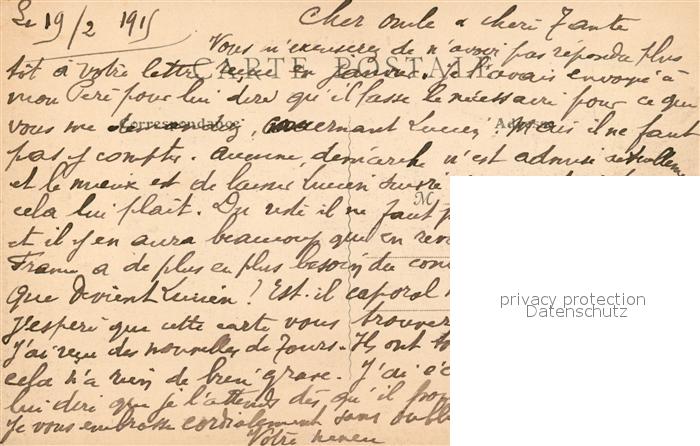 Le 19/2 1915
Cher oncle & chère Tante
Vous m'excuserez de n'avoir pas répondu plus
tôt à votre lettre reçue en janvier. Je l'avais envoyé à
CARTE POSTALE
mon Père pour lui dire qu'il fasse le nécessaire pour ce que
vous me concernant Lucien, mais il ne faut
Correspondance
Adresse
pas y compter. aucune démarche n'est admise actuellem
et le mieux est de laisser Lucien suivre
cela lui plait. Du reste il ne faut p
M
et il y en aura beaucoup que en rev
France a de plus en plus besoin du con
Que devient Lucien? Est-il caporal
J'espère que cette carte vous trouver
J'ai reçu des nouvelles de Tours. Ils ont
cela n'a rien de bien grave. J'ai
lui dire que je l'attends dès qu'il
Je vous embrasse cordialement sans oubli
Votre neveu
privacy protection
Datenschutz